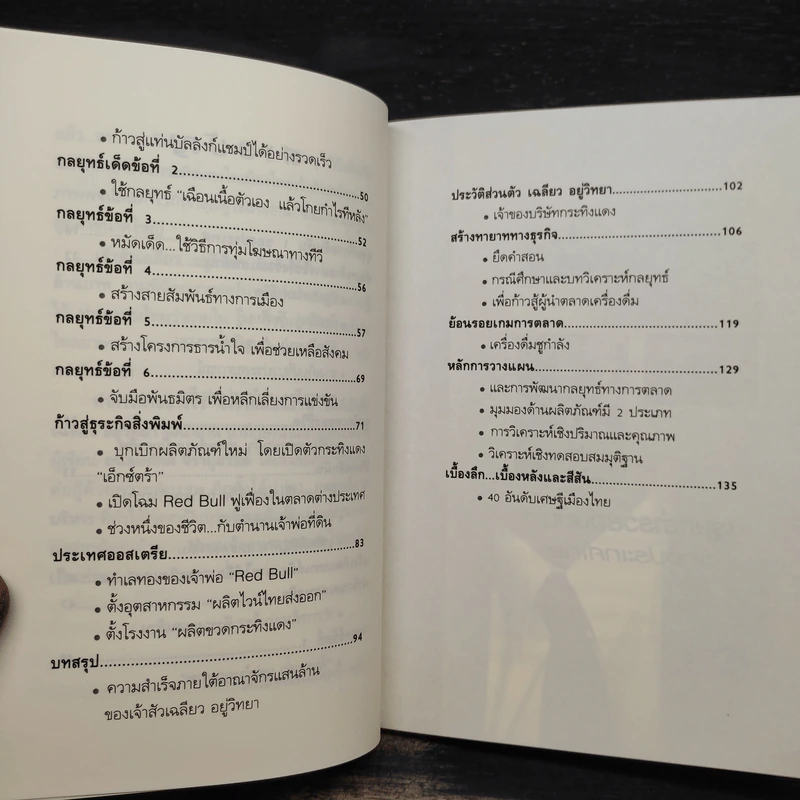 • ก้าวสู่แท่นบัลลังก์แชมป์ได้อย่างรวดเร็ว
กลยุทธ์เด็ดข้อที่ 2..........50
• ใช้กลยุทธ์ “เฉือนเนื้อตัวเอง แล้วโกยกำไรทีหลัง”
กลยุทธ์ข้อที่ 3..........52
• หมัดเด็ด...ใช้วิธีการทุ่มโฆษณาทางทีวี
กลยุทธ์ข้อที่ 4..........56
• สร้างสายสัมพันธ์ทางการเมือง
กลยุทธ์ข้อที่ 5..........57
• สร้างโครงการธารน้ำใจ เพื่อช่วยเหลือสังคม
กลยุทธ์ข้อที่ 6..........69
• จับมือพันธมิตร เพื่อหลีกเลี่ยงการแข่งขัน
ก้าวสู่ธุระกิจสิ่งพิมพ์..........71
• บุกเบิกผลิตภัณฑ์ใหม่ โดยเปิดตัวกระทิงแดง
“เอ็กซ์ตร้า”
• เปิดโฉม Red Bull ฟูเฟื่องในตลาดต่างประเทศ
• ช่วงหนึ่งของชีวิต...กับตำนานเจ้าพ่อที่ดิน
ประเทศออสเตรีย..........83
• ทำเลทองของเจ้าพ่อ “Red Bull”
• ตั้งอุตสาหกรรม “ผลิตไวน์ไทยส่งออก”
• ตั้งโรงงาน “ผลิตขวดกระทิงแดง”
บทสรุป..........94
• ความสำเร็จภายใต้อาณาจักรแสนล้าน
ของเจ้าสัวเฉลียว อยู่วิทยา
ประวัติส่วนตัว เฉลียว อยู่วิทยา..........102
• เจ้าของบริษัทกระทิงแดง
สร้างทายาททางธุรกิจ..........106
• ยึดคำสอน
• กรณีศึกษาและบทวิเคราะห์กลยุทธ์
• เพื่อก้าวสู้ผู้นำตลาดเครื่องดื่ม
ย้อนรอยเกมการตลาด..........119
• เครื่องดื่มชูกำลัง
หลักการวางแผน..........129
• และการพัฒนากลยุทธ์ทางการตลาด
• มุมมองด้านผลิตภัณฑ์มี 2 ประเภท
• การวิเคราะห์เชิงปริมาณและคุณภาพ
• วิเคราะห์เชิงทดสอบสมมุติฐาน
เบื้องลึก...เบื้องหลังและสีสัน..........135
• 40 อันดับเศรษฐีเมืองไทย